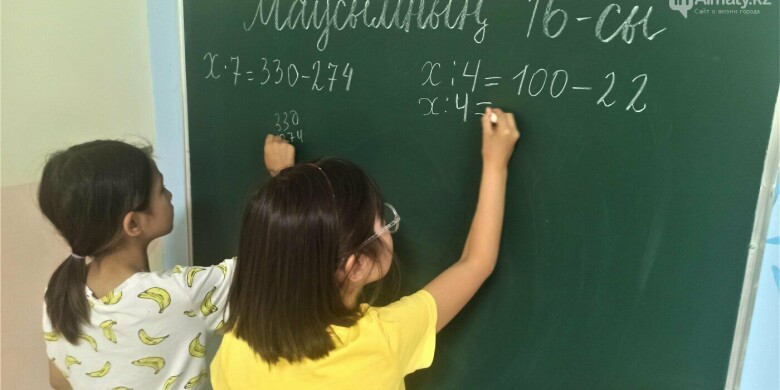 Almaty.kz
Сайт о жизни города
Маусымның 16-сы
x·7=330-274
330
274
x:4=100-22
x:4=